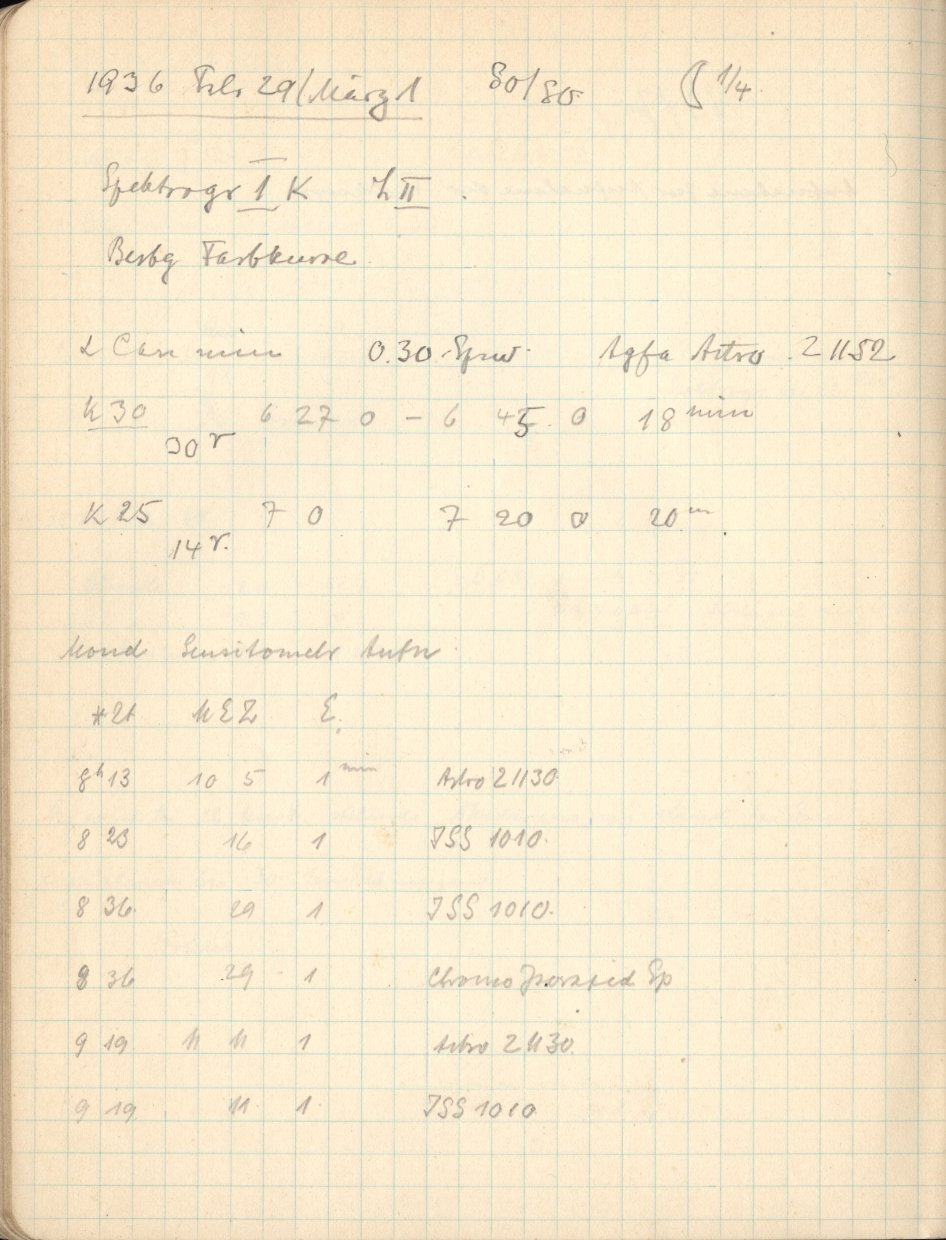 1936 Febr 29/März 1 80/80 ☾ 1/4
Spektrogr I K L II.
Bsbg Farbkurve
α Can min 0.30 Spw. Agfa Astro 21152
K 30 6 27 0 – 6 45 0 18 min
30 r
K 25 7 0 7 20 0 20 m
14 r.
Mond Sensitometr Aufn
*Zt MEZ E.
8h 13 10 5 1 min Astro 21130
8 23 16 1 ISS 1010.
8 36 29 1 ISS 1010.
8 36 29 1 Chromo Isorapid
9 19 11 11 1 Astro 21130
9 19 11 1. ISS 1010